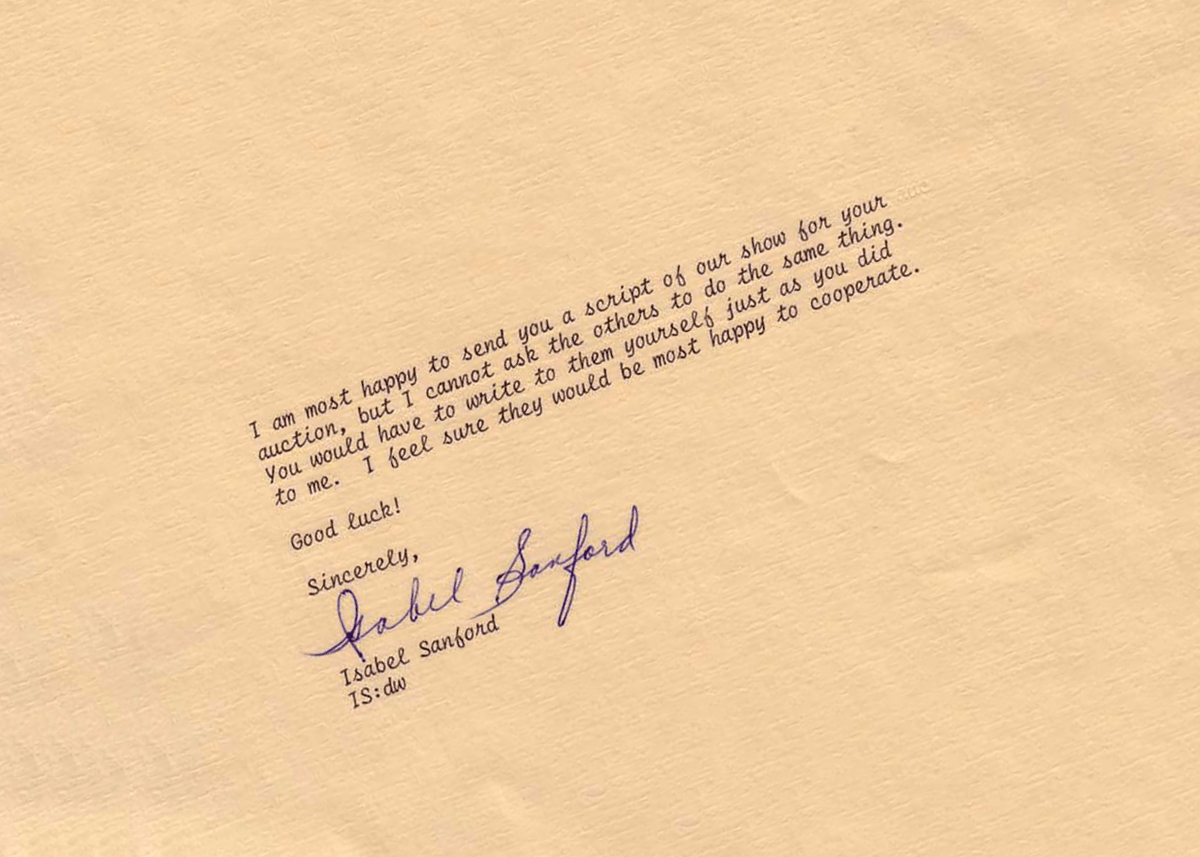 I am most happy to send you a script of our show for your
auction, but I cannot ask the others to do the same thing.
You would have to write to them yourself just as you did
to me.  I feel sure they would be most happy to cooperate.
Good luck!
Sincerely,
Isabel Sanford
Isabel Sanford
IS:dw